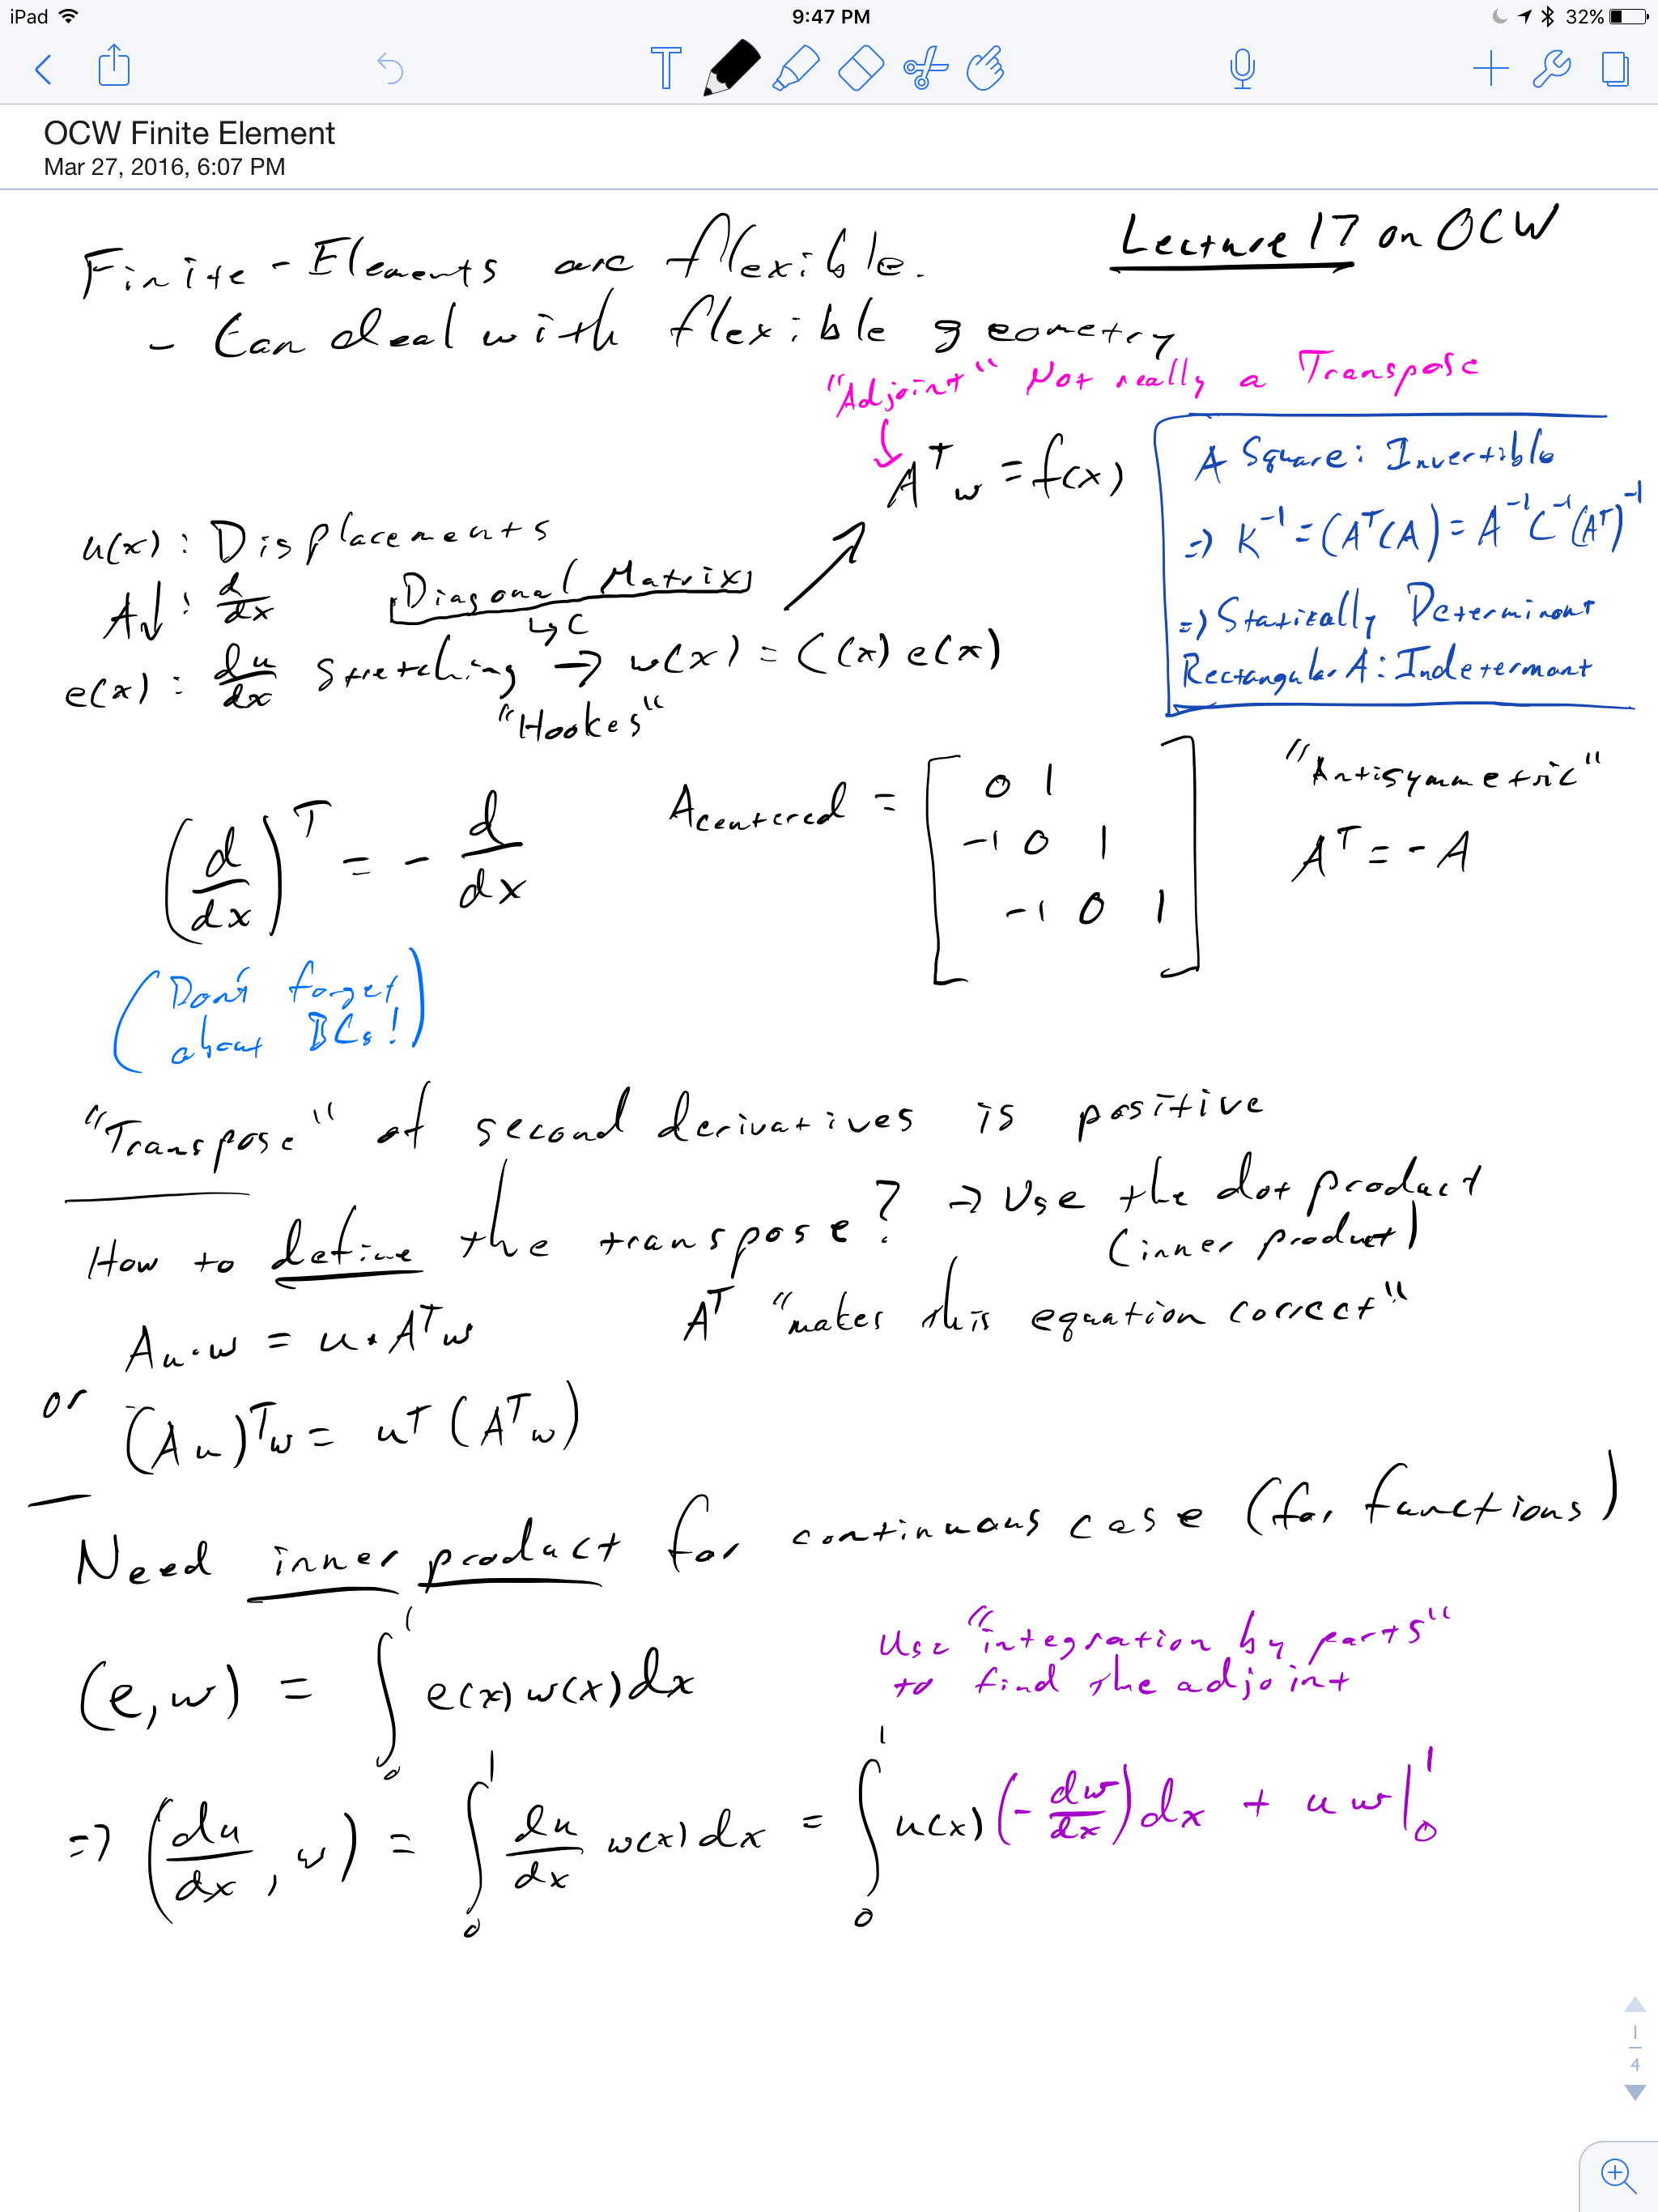 iPad 9:47 PM 32%
T
OCW Finite Element
Mar 27, 2016, 6:07 PM
Lecture 17 on OCW
Finite-Elements are flexible.
- Can deal with flexible geometry
"Adjoint" Not really a Transpose
Aᵀw = f(x)
u(x): Displacements
A↓: d/dx
Diagonal Matrix
↳ C
e(x): du/dx Stretching → w(x) = C(x) e(x)
"Hookes"
A Square: Invertible
=> K⁻¹ = (AᵀCA) = A⁻¹C⁻¹(Aᵀ)⁻¹
=> Statically Determinant
Rectangular A: Indetermant
(d/dx)ᵀ = - d/dx
A centered = [
0 1
-1 0 1
-1 0 1
]
"Antisymmetric"
Aᵀ = -A
(Don't forget
about BCs!)
"Transpose" of second derivatives is positive
How to define the transpose? => Use the dot product
(inner product)
Au·w = u·Aᵀw Aᵀ "makes this equation correct"
or (Au)ᵀw = uᵀ(Aᵀw)
Need inner product for continuous case (for functions)
(e,w) = ∫₀¹ e(x)w(x)dx
Use "integration by parts"
to find the adjoint
=> (du/dx, w) = ∫₀¹ du/dx w(x)dx = ∫₀¹ u(x)(-dw/dx)dx + uw|₀¹
1
4